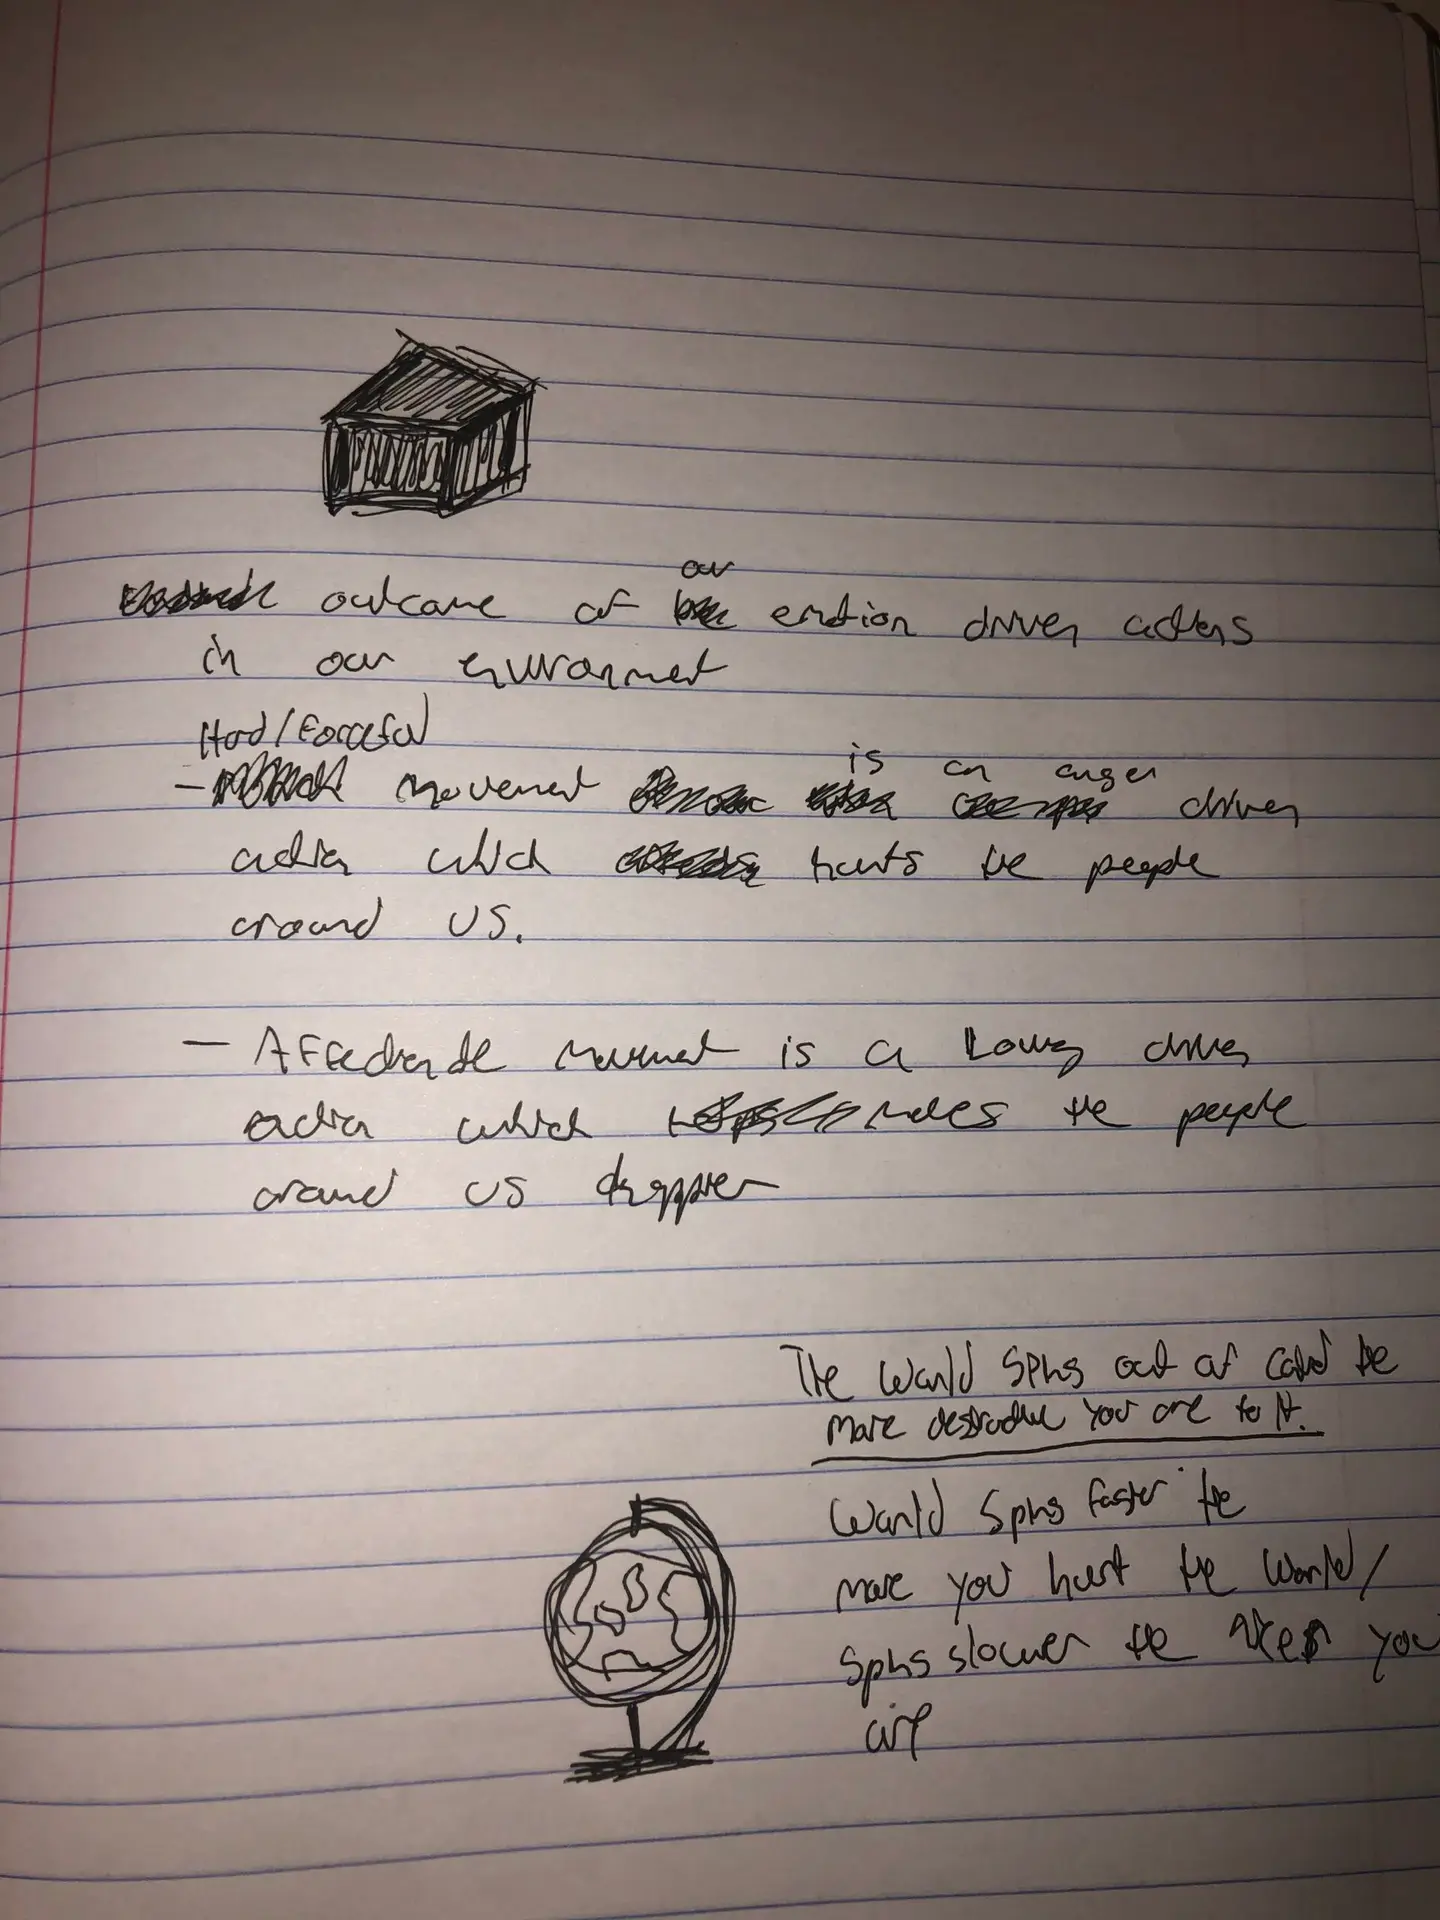 outcome of our emotion driven actions
in our environment
Hard/Forceful
- movement is an anger driven
action which hurts the people
around us.
- Affectionate movement is a loving driven
action which makes the people
around us happier
The World Spins out of control the
more destructive you are to it.
World Spins faster the
more you hurt the World/
Spins slower the nicer you
are